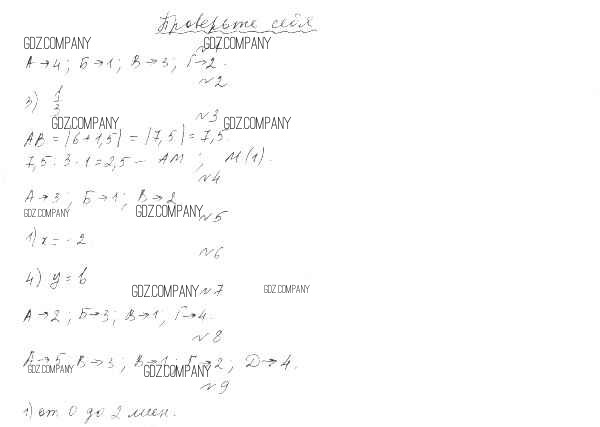 Проверьте себя
GDZ.COMPANY GDZ.COMPANY
А → 4; Б → 1; В → 3; Г → 2.
№2
3) 1/3
№3
GDZ.COMPANY GDZ.COMPANY
АВ = |6 + 1,5| = |7,5| = 7,5.
7,5 : 3 · 1 = 2,5 – АМ; М(1).
№4
А → 3; Б → 1; В → 2
GDZ.COMPANY GDZ.COMPANY №5
1) x = -2
№6
4) y = 6
GDZ.COMPANY №7 GDZ.COMPANY
А → 2; Б → 3; В → 1; Г → 4.
№8
А → 5 → 3; В → 1; Г → 2; Д → 4.
GDZ.COMPANY GDZ.COMPANY
№9
1) от 0 до 2 мин.